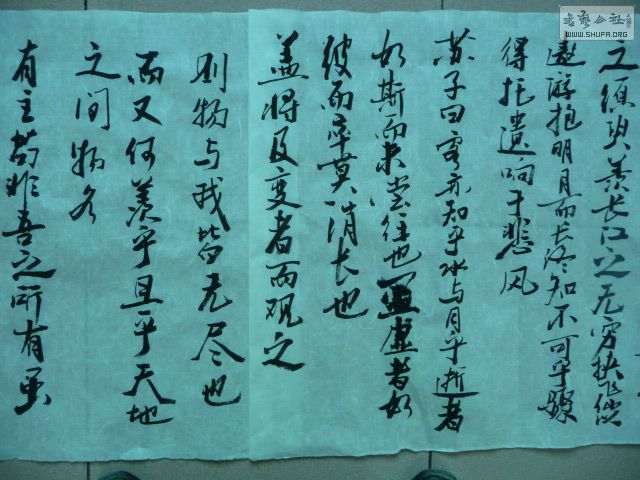 之须臾羡长江之无穷挟飞仙
遨游抱明月而长终知不可乎骤
得托遗响于悲风
苏子曰客亦知乎水与月乎逝者
如斯而未尝往也盈虚者如
彼而卒莫消长也
盖将及变者而观之
则物与我皆无尽也
而又何羡乎且乎天地
之间物各
有主苟非吾之所有虽
书艺公社
WWW.SHUFA.ORG